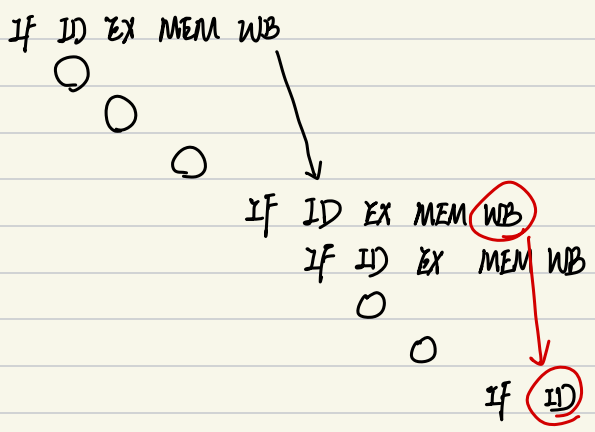 IF ID EX MEM WB
IF ID EX MEM WB
IF ID EX MEM WB
IF ID